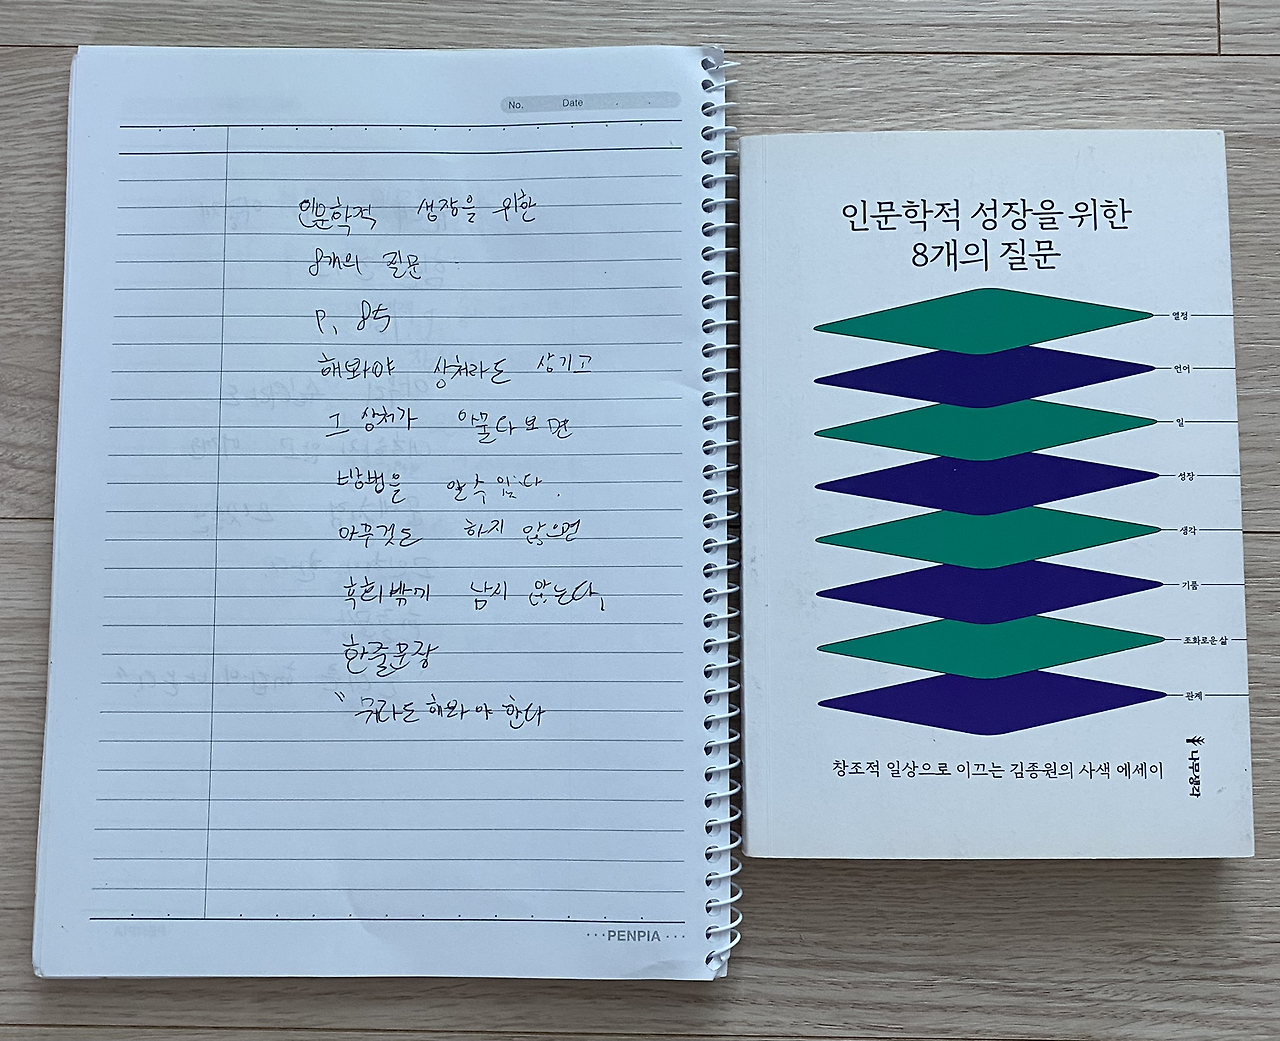 No. Date
인문학적 성장을 위한
8개의 질문
P, 85
해봐야 상처라도 상기고
그 상처가 아물다보면
방법을 알수있다.
아무것도 하지 않으면
후회밖께 남지 않는다,
한줄문장
"뭐라도해봐야 한다
PENPIA
인문학적 성장을 위한
8개의 질문
열정
언어
일
성장
생각
기품
조화로운 삶
관계
창조적 일상으로 이끄는 김종원의 사색 에세이
나무생각